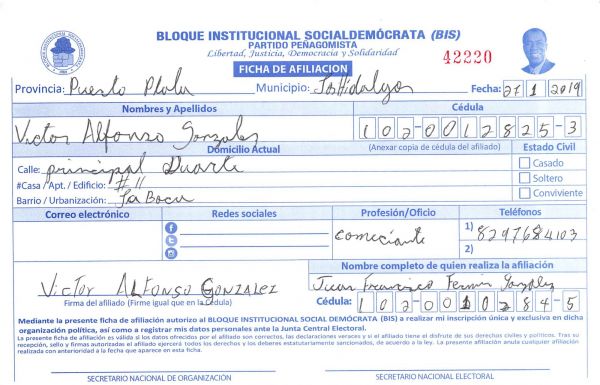 BLOQUE INSTITUCIONAL SOCIALDEMÓCRATA (BIS)
PARTIDO PEÑAGOMISTA
Libertad, Justicia, Democracia y Solidaridad
42220
FICHA DE AFILIACION
Provincia: Puerto Plata Municipio: Los Hidalgos Fecha: 27 1 2019
Nombres y Apellidos Cédula
Victor Alfonso Gonzalez 102-0012825-3
Domicilio Actual (Anexar copia de cédula del afiliado) Estado Civil
Calle: principal Duarte Casado
#Casa / Apt. / Edificio: #11 Soltero
Barrio / Urbanización: La Boca Conviviente
Correo electrónico Redes sociales Profesión/Oficio Teléfonos
comeciante 1) 8297684103
2)
Nombre completo de quien realiza la afiliación
VICTOR ALFONSO GONZALEZ Juan Francisco Fermin Gonzalez
Firma del afiliado (Firme igual que en la cédula) Cédula: 102-0010284-5
Mediante la presente ficha de afiliación autorizo al BLOQUE INSTITUCIONAL SOCIAL DEMÓCRATA (BIS) a realizar mi inscripción única y exclusiva en dicha
organización política, así como a registrar mis datos personales ante la Junta Central Electoral.
La presente ficha de afiliación es válida si los datos ofrecidos por el afiliado son correctos, las declaraciones veraces y si el afiliado tiene el disfrute de sus derechos civiles y políticos. Tras su
recepción, sello y firmas autorizadas el afiliado ejercerá todos los derechos y los deberes estatutariamente sancionados, de acuerdo a la ley. La presente afiliación anula cualquier afiliación
realizada con anterioridad a la fecha que aparece en esta ficha.
SECRETARIO NACIONAL DE ORGANIZACIÓN SECRETARIO NACIONAL ELECTORAL